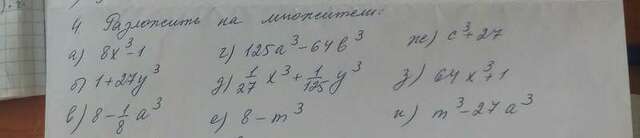 4 Разложить на множители:
а) 8x³-1 г) 125a³-64b³ ж) c³+27
б) 1+27y³ д) 1/27 x³ + 1/125 y³ з) 64x³+1
в) 8-1/8 a³ е) 8-m³ и) m³-27a³